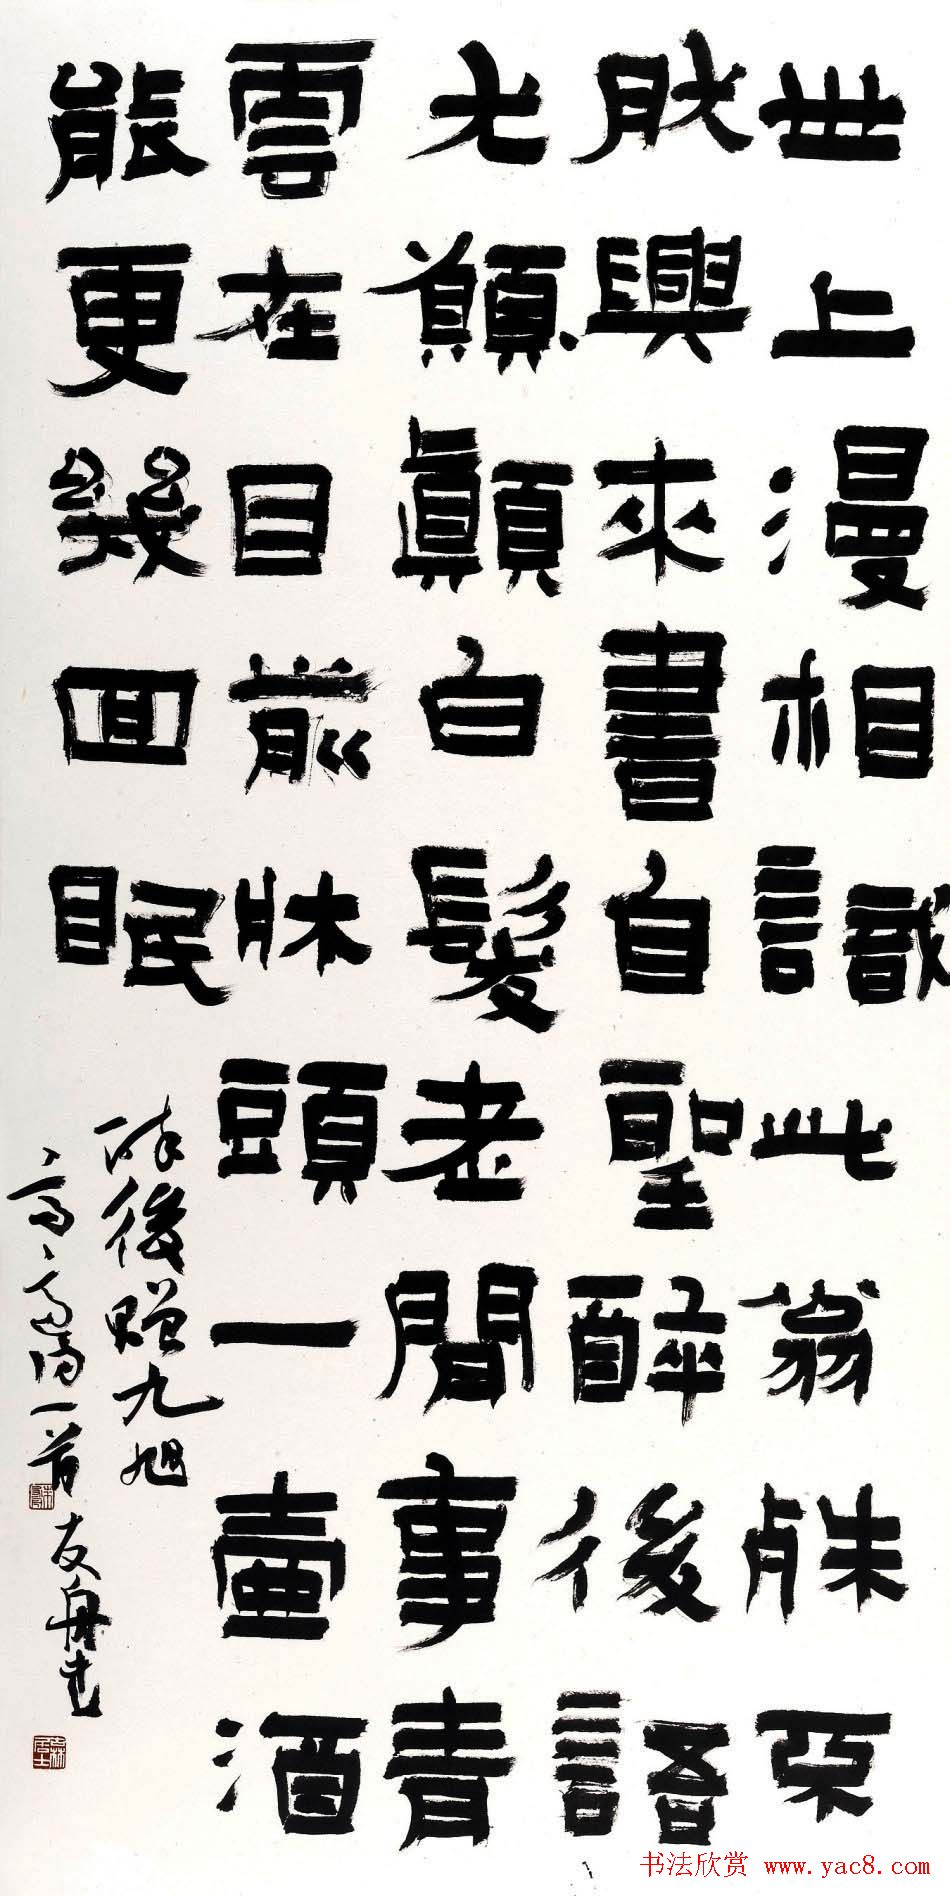 世上漫相識此翁殊不
然興來書自聖醉後語
尤顛白髮老間事青
雲在目前牀頭一壺酒
能更幾回眠
醉後贈九旭
高適一首 友舟書
书法欣赏 www.yac8.com